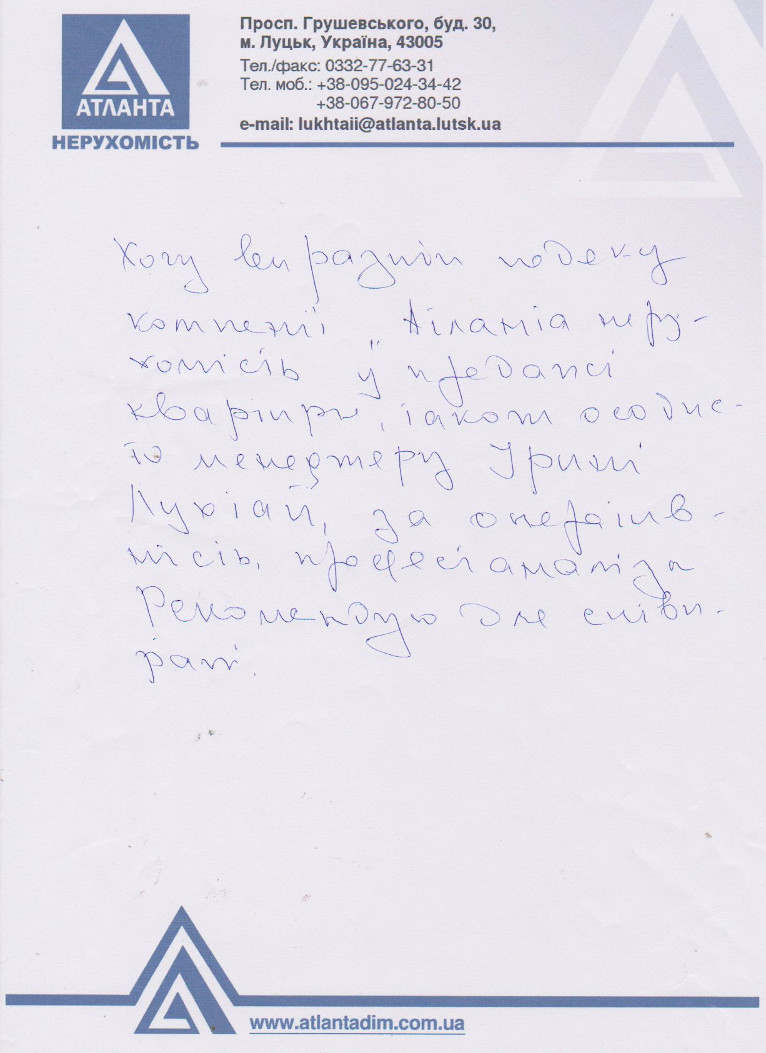 АТЛАНТА
НЕРУХОМІСТЬ
Просп. Грушевського, буд. 30,
м. Луцьк, Україна, 43005
Тел./факс: 0332-77-63-31
Тел. моб.: +38-095-024-34-42
+38-067-972-80-50
e-mail: lukhtaii@atlanta.lutsk.ua
Хочу виразити подяку
компанії „Атланта неру-
хомість" у продажі
квартири, також особис-
то менеджеру Ірині
Лухтай, за оператив-
ність, професіоналізм
Рекомендую для співп-
раці.
www.atlantadim.com.ua